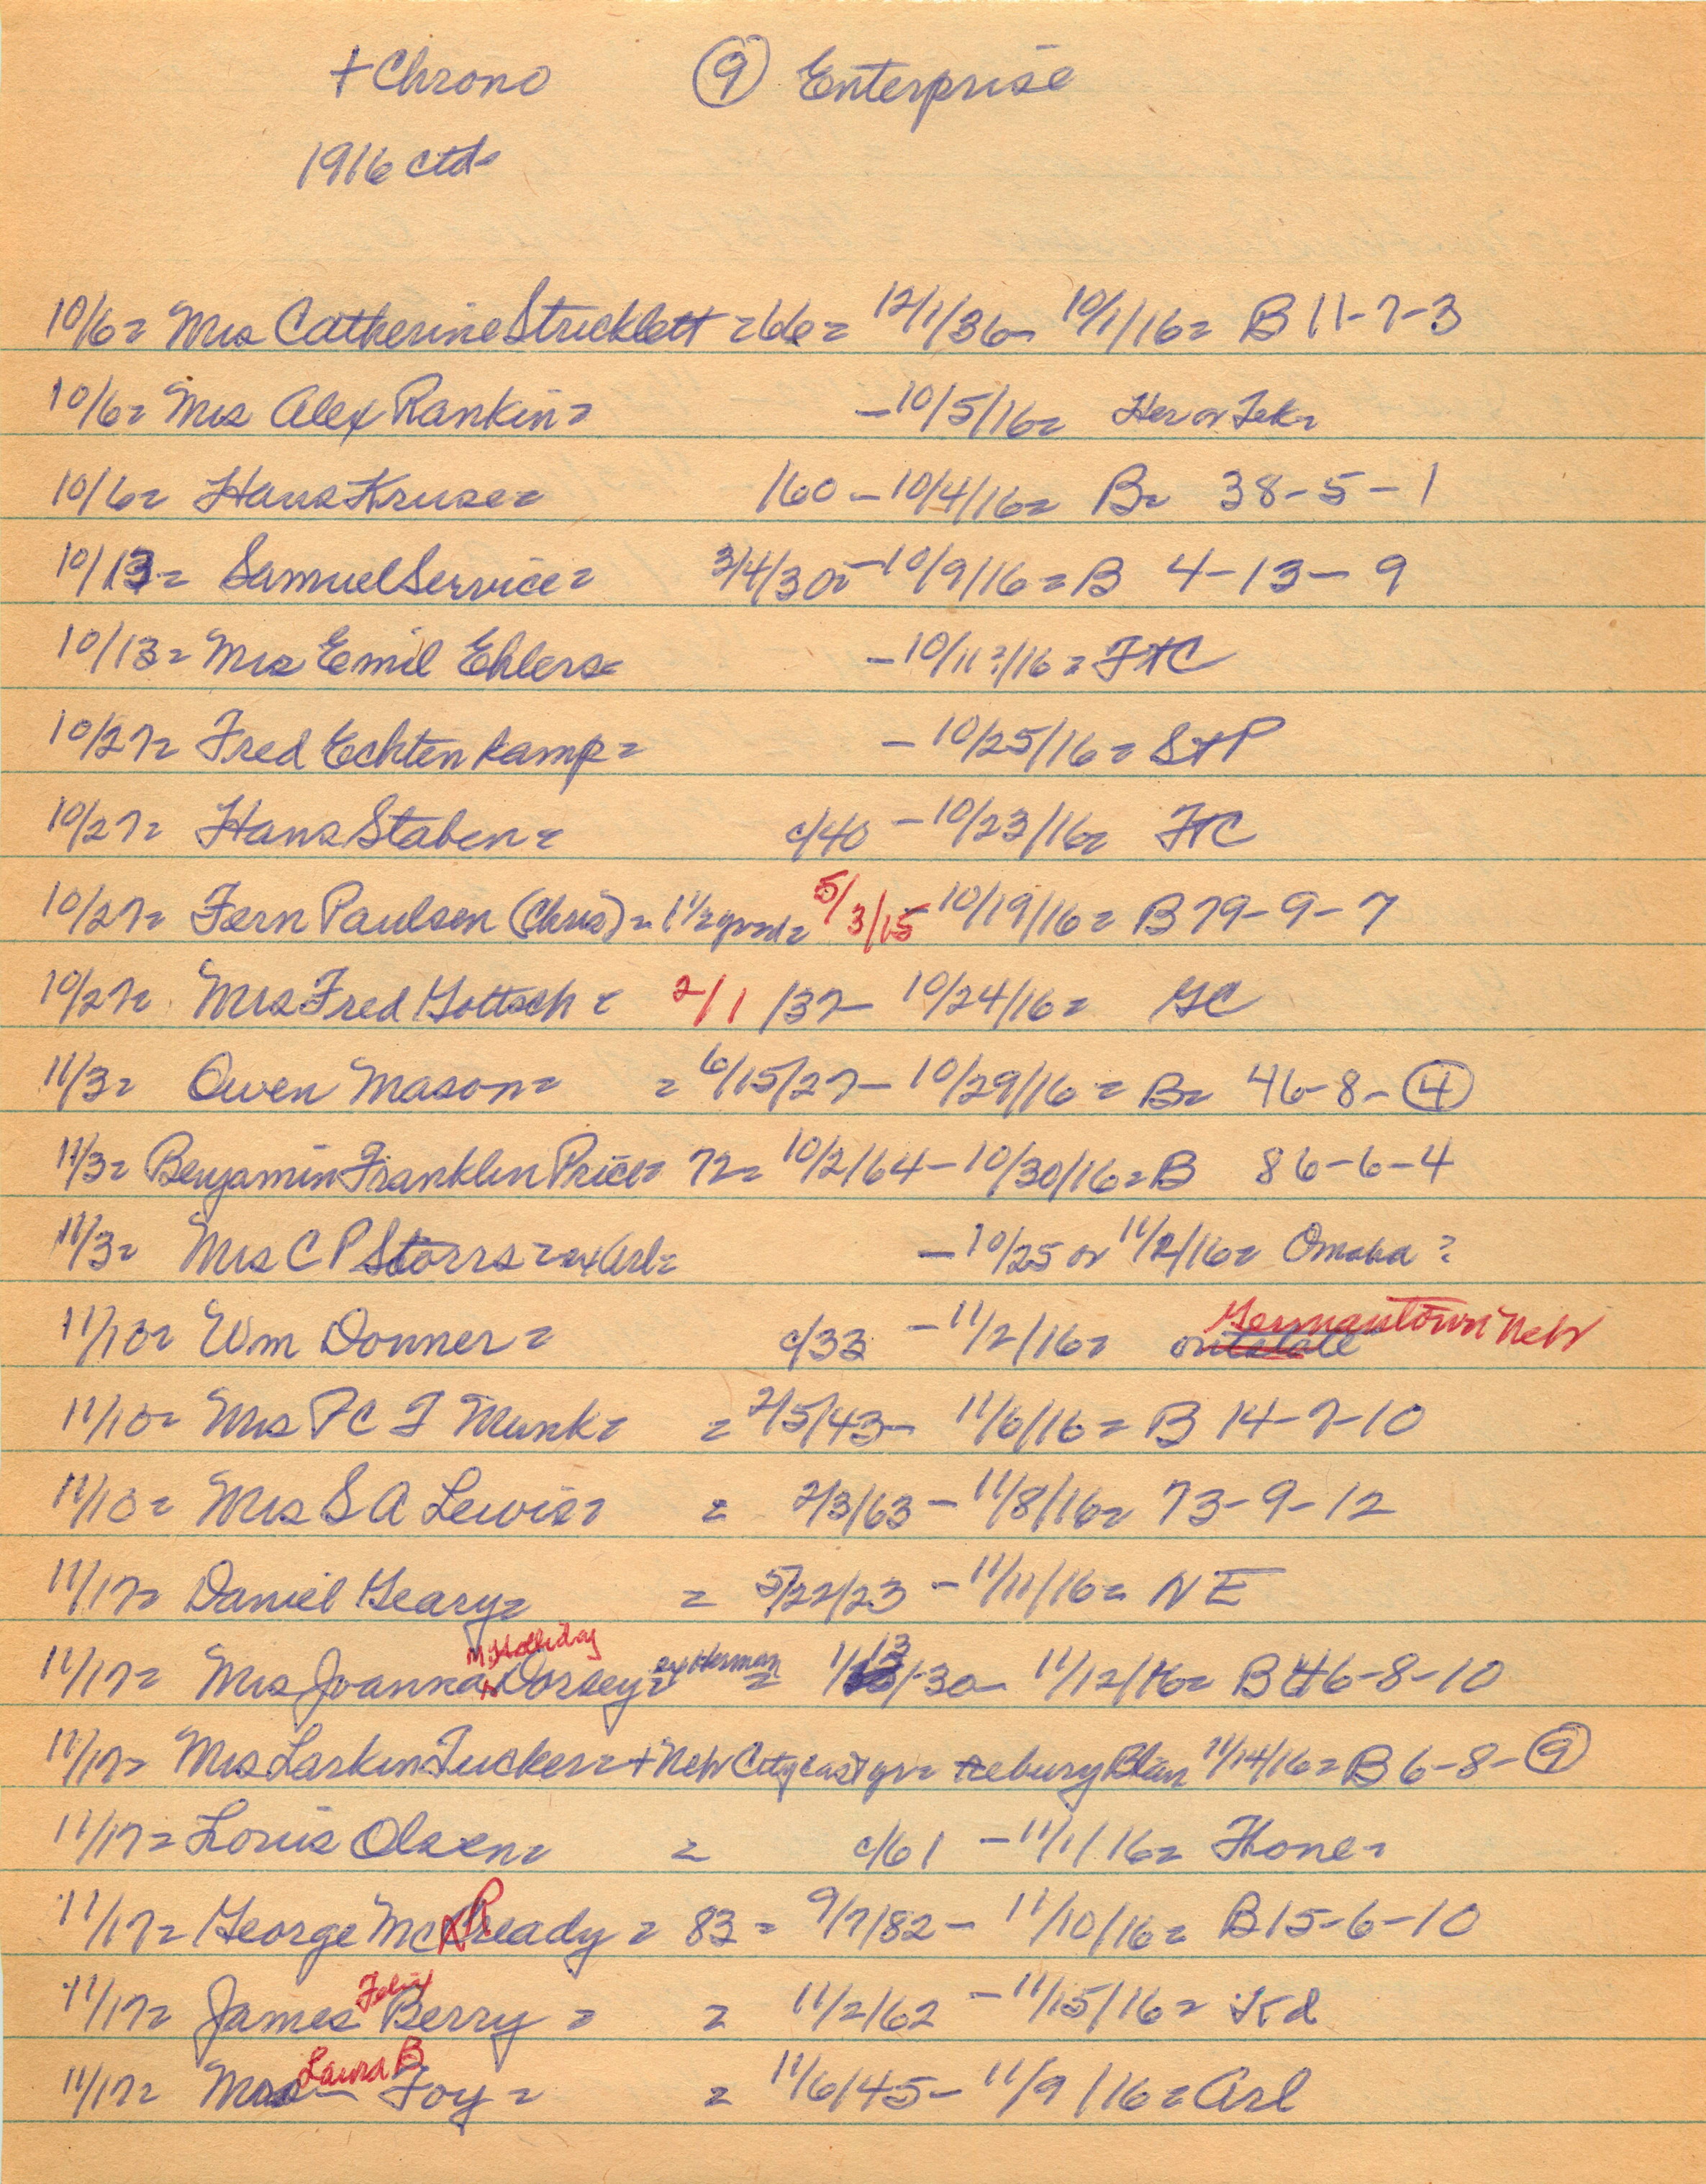 +Chrono ⑨ Enterprise
1916 ctd-
10/6= Mrs Catherine Stricklett =66= 12/1/36- 10/1/16= B 11-7-3
10/6= Mrs Alex Rankin= -10/5/16= Her or Tek=
10/6= Hans Kruse= /60 -10/4/16= B= 38-5-1
10/13= Samuel Service= 3/4/30= -10/9/16= B 4-13-9
10/13= Mrs Emil Ehlers= -10/11?/16= FtC
10/27= Fred Echtenkamp= -10/25/16= StP
10/27= Hans Staben= c/40 -10/23/16= FtC
10/27= Fern Paulsen (Chris)= 1 1/2 yr = 5/3/15 10/19/16= B 79-9-7
10/27= Mrs Fred Gottsch= 2/1/37- 10/24/16= GC
11/3= Owen Mason= = 6/15/27- 10/29/16= B= 46-8-④
11/3= Benjamin Franklin Price= 72= 10/2/64-10/30/16= B 86-6-4
11/3= Mrs C P Storrs= ex Arl= -10/25 or 11/2/16= Omaha?
Germantown Neb
11/10= Wm Donner= c/33 -11/2/16= outstate
11/10= Mrs P C F Munk= = 2/5/43- 11/6/16= B 14-7-10
11/10= Mrs S A Lewis= = 2/3/63-11/8/16= 73-9-12
11/17= Daniel Geary= = 5/22/23 -11/11/16= NE
M Holliday
11/17= Mrs Joanna Dorsey= ex Herman = 1/13/30- 11/12/16= B 46-8-10
11/17= Mrs Larkin Tucker= + New City east yr= bury Blair 11/14/16= B 6-8-⑨
11/17= Louis Olsen= = c/61 -11/1/16= Home=
11/17= George McCReady= 83= 9/7/82- 11/10/16= B 15-6-10
Felix
11/17= James Berry= = 11/2/62 -11/15/16= Kd
Laura B
11/17= Mrs Foy= = 11/6/45- 11/9/16= Arl